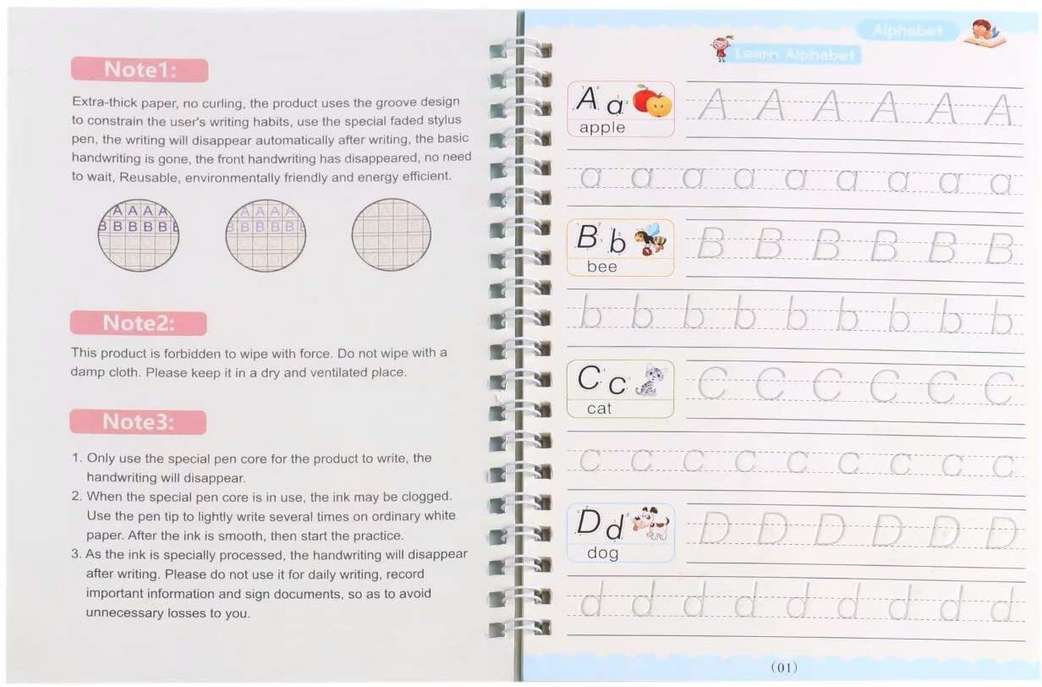 Note1:
Extra-thick paper, no curling, the product uses the groove design
to constrain the user's writing habits, use the special faded stylus
pen, the writing will disappear automatically after writing, the basic
handwriting is gone, the front handwriting has disappeared, no need
to wait, Reusable, environmentally friendly and energy efficient.
A A A A
B B B B B
A A A A
B B B B B
Note2:
This product is forbidden to wipe with force. Do not wipe with a
damp cloth. Please keep it in a dry and ventilated place.
Note3:
1. Only use the special pen core for the product to write, the
handwriting will disappear.
2. When the special pen core is in use, the ink may be clogged.
Use the pen tip to lightly write several times on ordinary white
paper. After the ink is smooth, then start the practice.
3. As the ink is specially processed, the handwriting will disappear
after writing. Please do not use it for daily writing, record
important information and sign documents, so as to avoid
unnecessary losses to you.
Alphabet
Learn Alphabet
A a
apple
A A A A A A
a a a a a a a a a
B b
bee
B B B B B B
b b b b b b b b b
C c
cat
C C C C C C
c c c c c c c c c
D d
dog
D D D D D D
d d d d d d d d d
(01)